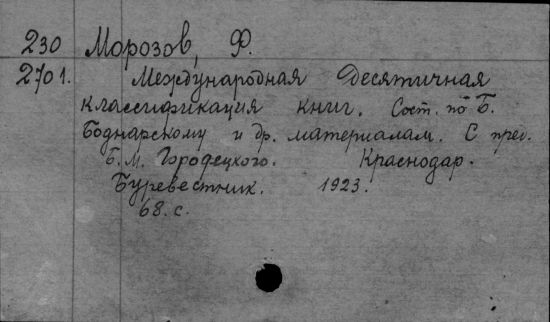 230 Морозов, Ф.
2701. Международная Десятичная
классификация книг. Сост. по Б.
Боднарскому и др. материалам. С пред.
Б. М. Городецкого. Краснодар.
Буревестник. 1923.
68. с.